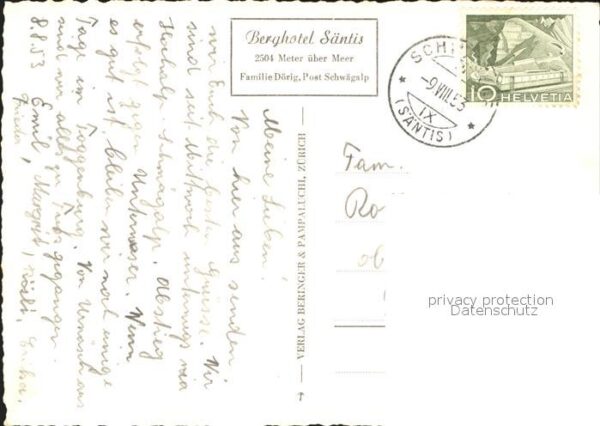 Berghotel Säntis
2504 Meter über Meer
Familie Dörig, Post Schwägalp
SCH
(SÄNTIS)
-9.VIII.53
IX
10 HELVETIA
VERLAG BERINGER & PAMPALUCHI, ZÜRICH
Meine Lieben!
Von hier aus senden
wir Euch die besten Grüsse. Wir
sind seit Mittwoch unterwegs via
Hochalp - Schwägalp. Abstieg
erfolgt gegen Unterwasser. Wenn
es gut ist, bleiben wir noch einige
Tage im Toggenburg. Von Urnäsch aus
sind wir alles zu Fuss gegangen.
8.8.53 Emil, Margrit, Rösli, Erika,
Frieda
Fam.
Ro
ob
privacy protection
Datenschutz